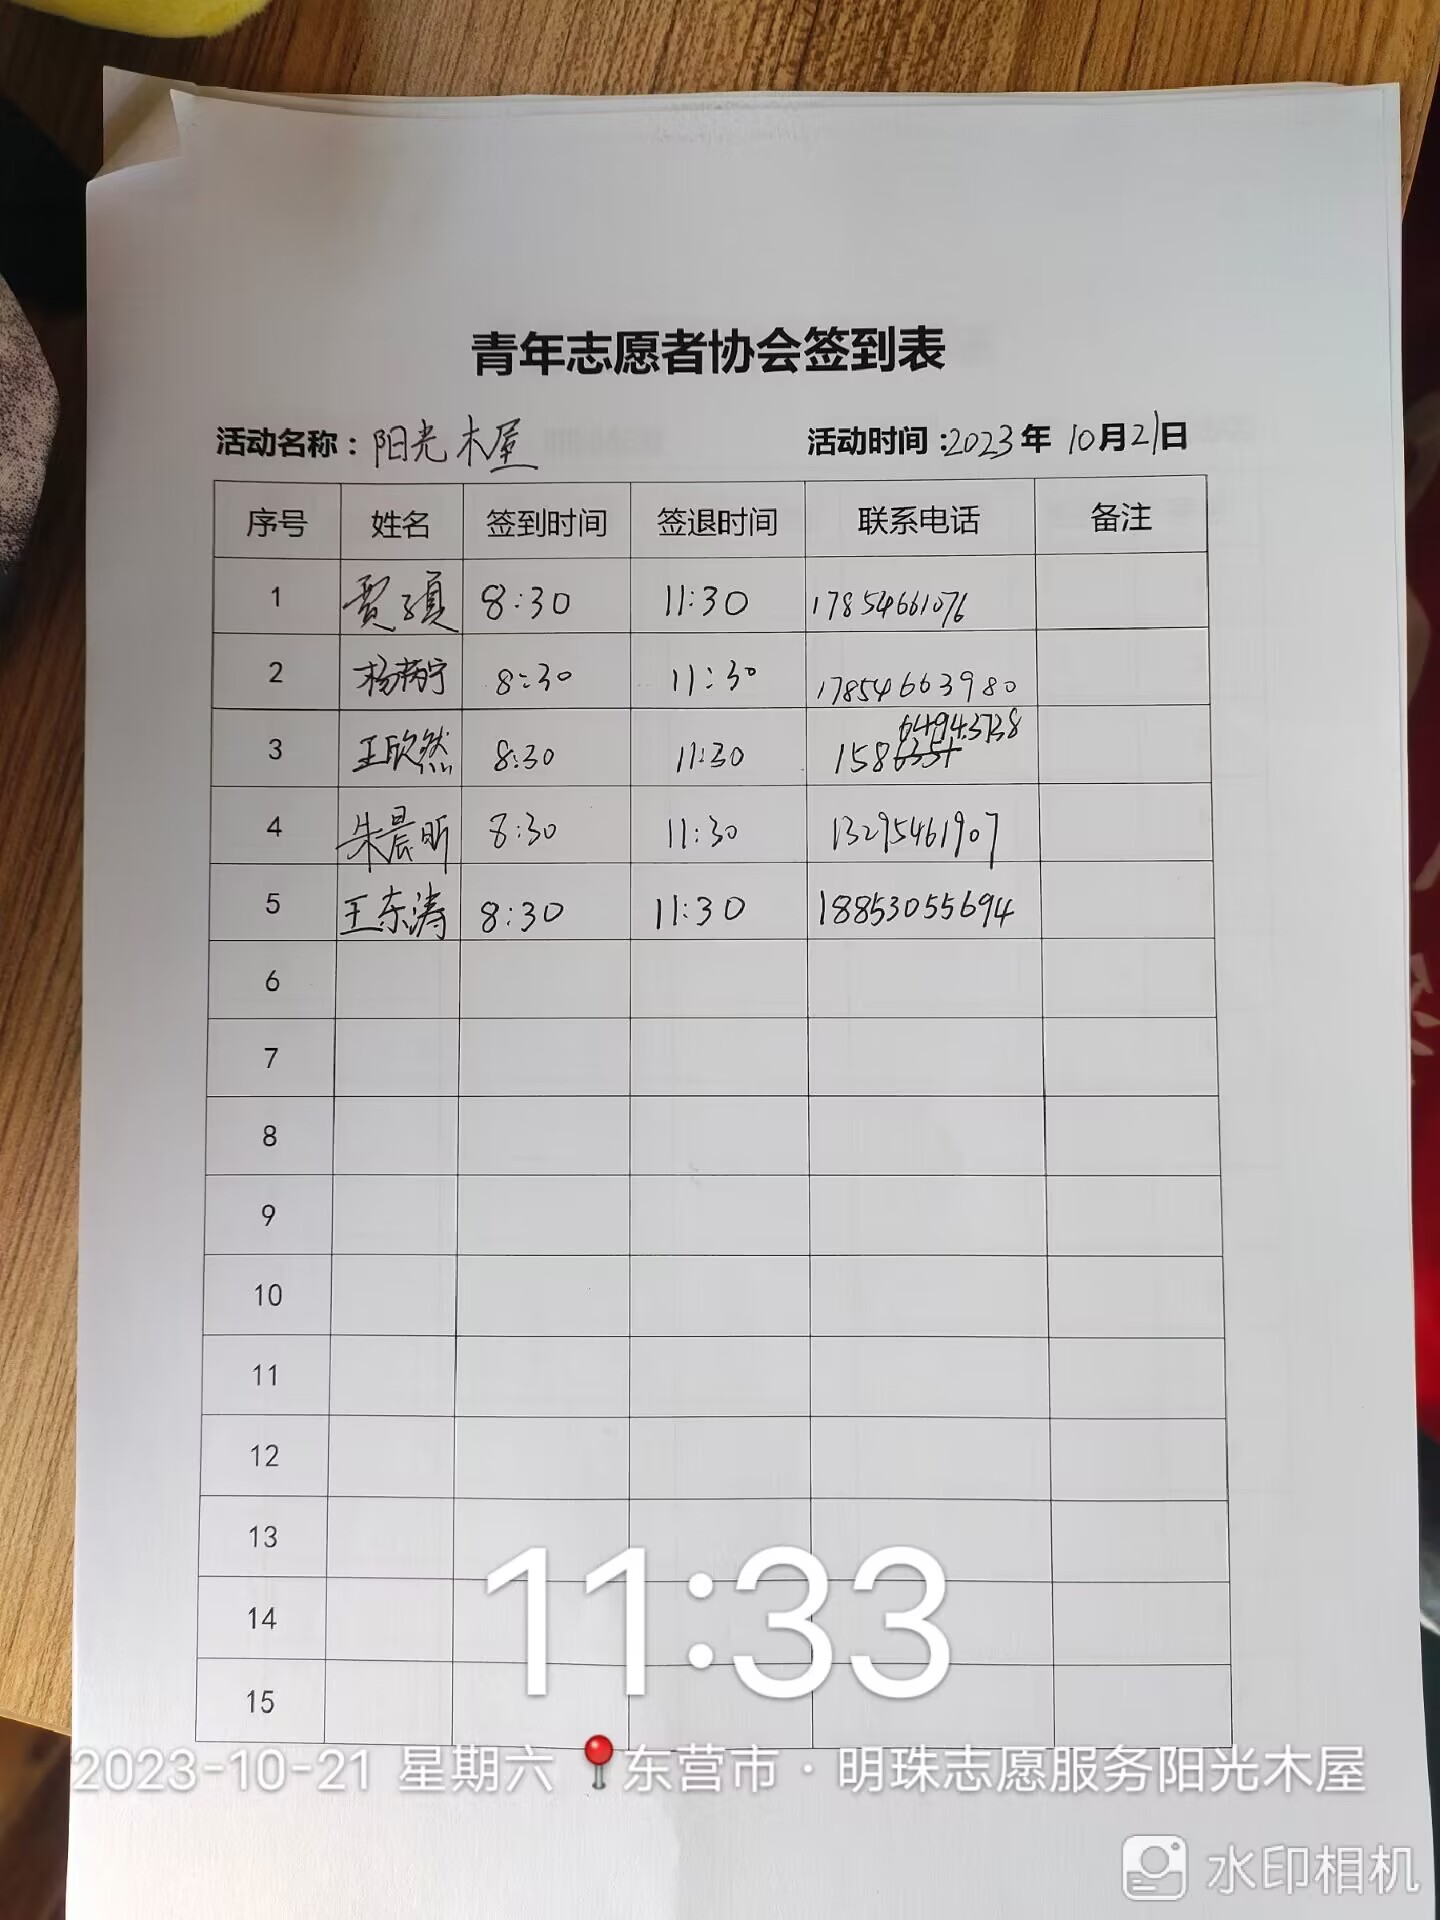 青年志愿者协会签到表
活动名称：阳光木屋 活动时间：2023年10月21日
序号 姓名 签到时间 签退时间 联系电话 备注
1 8:30 11:30 17854661076
2 8:30 11:30 17854663980
3 王欣然 8:30 11:30 15864943738
4 朱晨昕 8:30 11:30 13295461907
5 王东涛 8:30 11:30 18853055694
6
7
8
9
10
11
12
13
14
15
11:33
2023-10-21 星期六 东营市·明珠志愿服务阳光木屋
水印相机